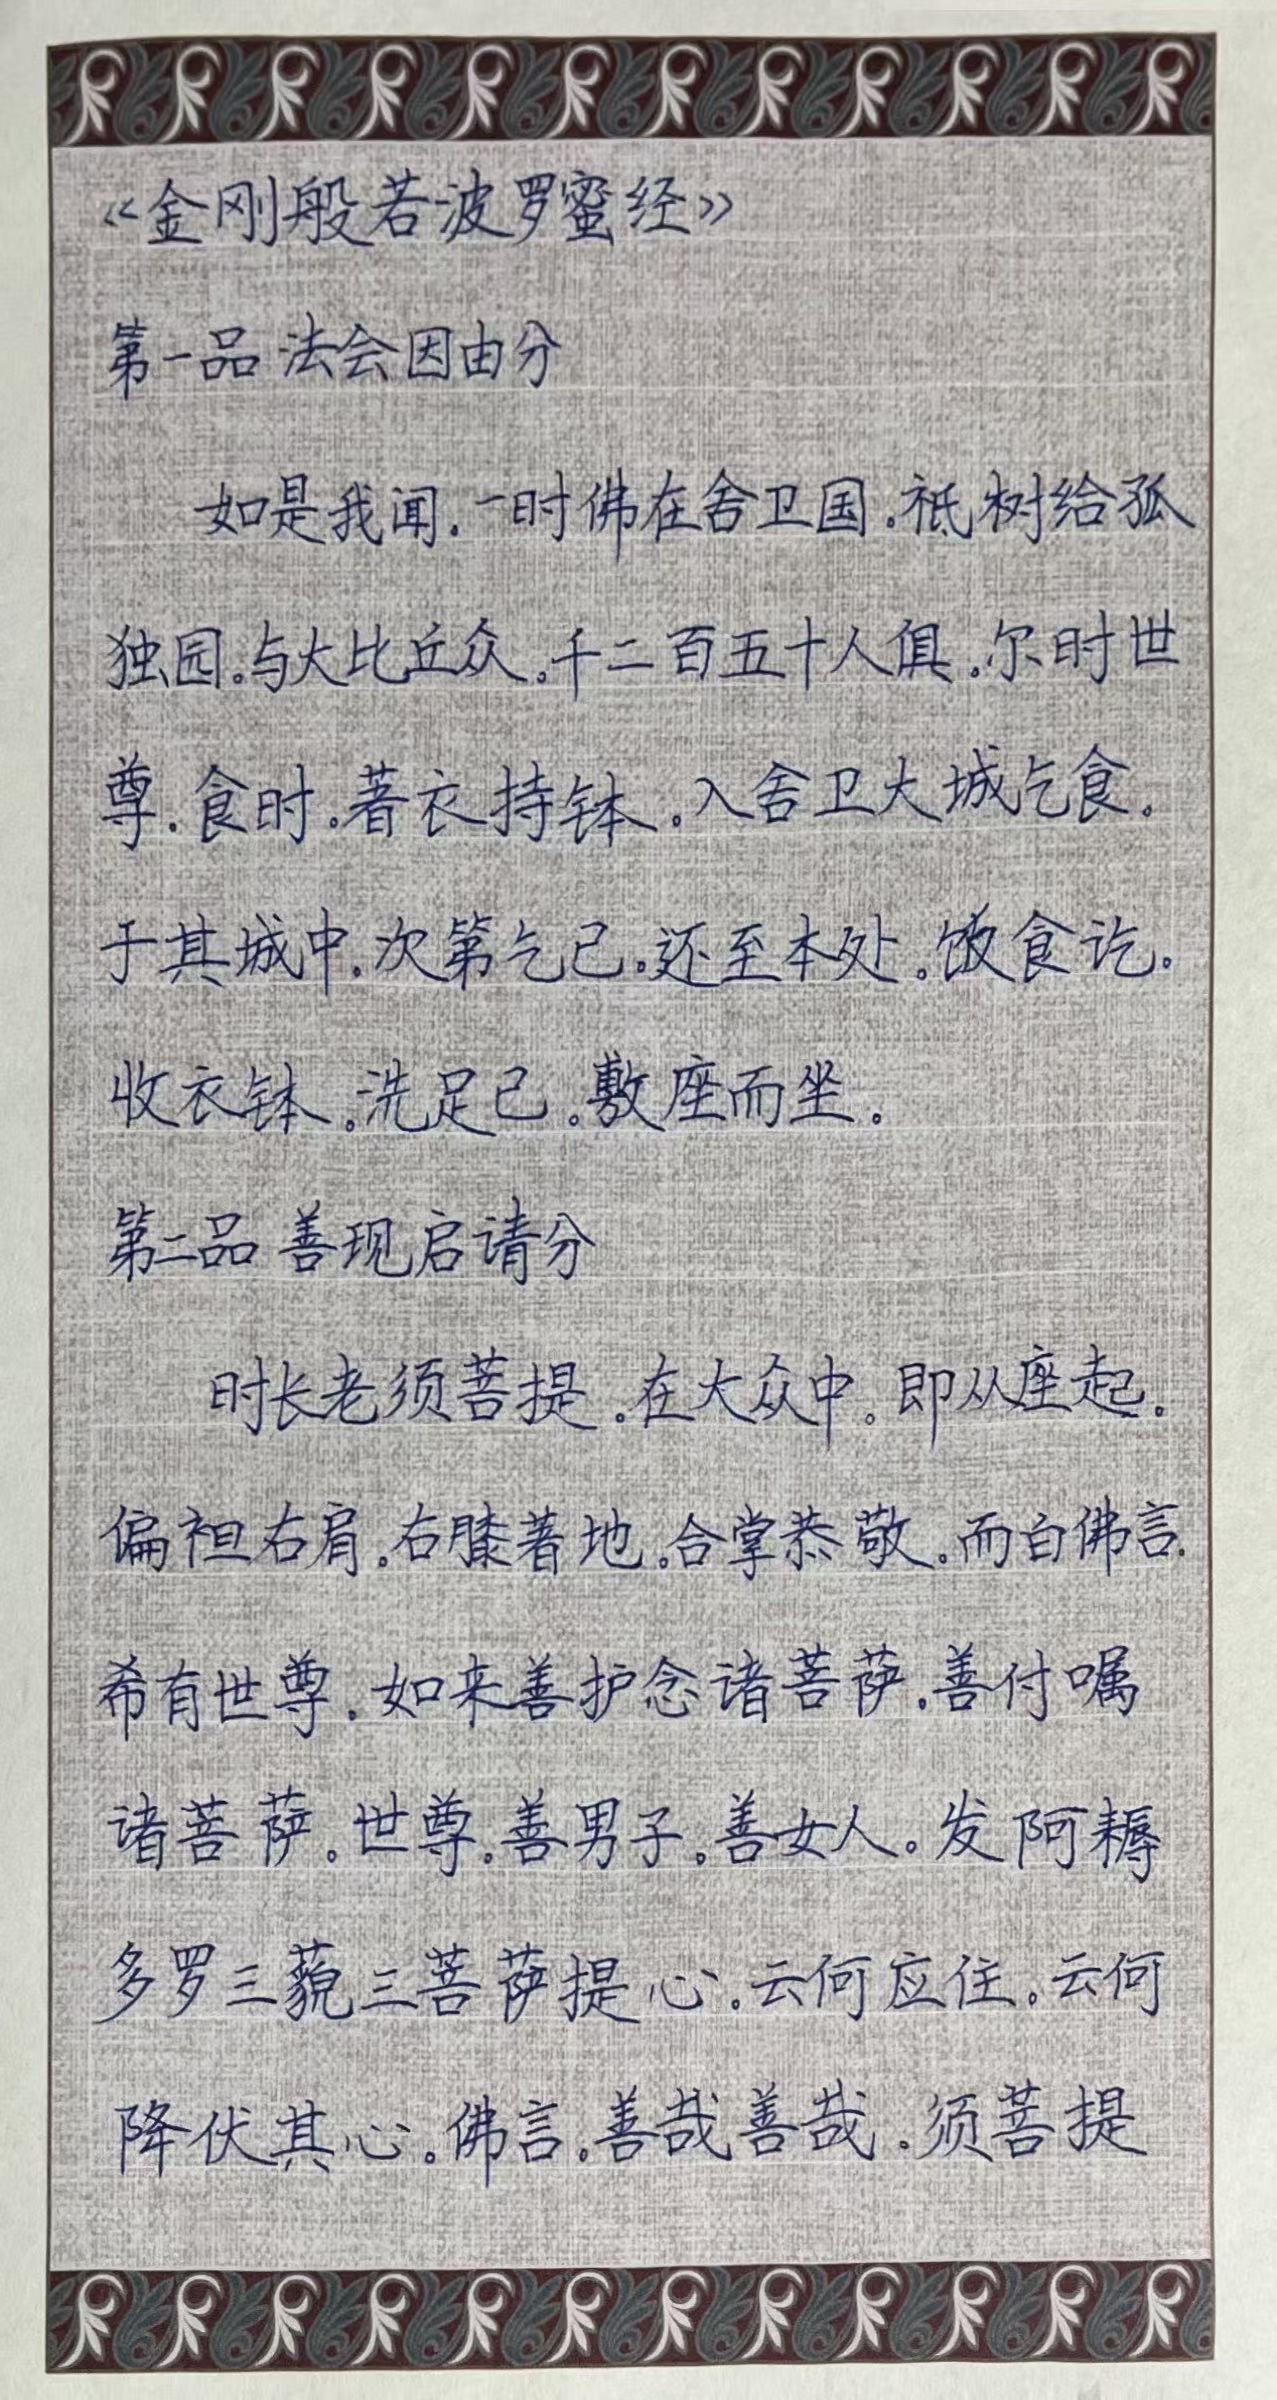 《金刚般若波罗蜜经》
第一品 法会因由分
如是我闻.一时佛在舍卫国.祇树给孤
独园。与大比丘众.千二百五十人俱.尔时世
尊.食时.著衣持钵.入舍卫大城乞食.
于其城中.次第乞已.还至本处.饭食讫.
收衣钵.洗足已.敷座而坐.
第二品 善现启请分
时长老须菩提.在大众中.即从座起.
偏袒右肩.右膝著地.合掌恭敬.而白佛言.
希有世尊.如来善护念诸菩萨.善付嘱
诸菩萨.世尊.善男子.善女人.发阿耨
多罗三藐三菩萨提心.云何应住.云何
降伏其心.佛言.善哉善哉.须菩提